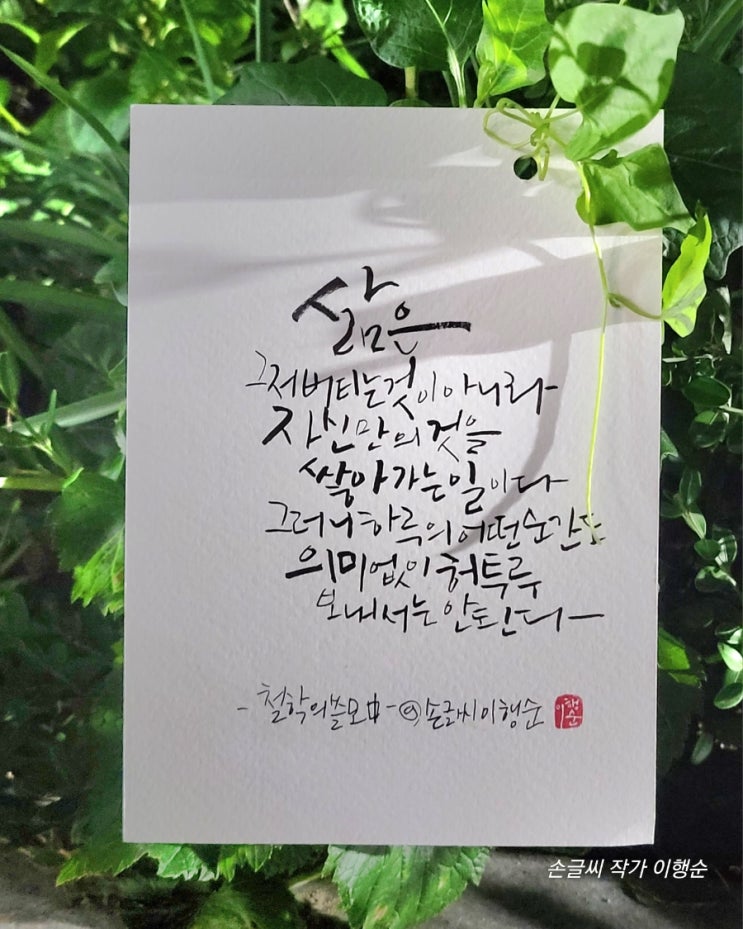 삶은
그저 버티는 것이 아니라
자신만의 것을
쌓아가는 일이다
그러니 하루의 어떤 순간도
의미없이 허투루
보내서는 안된다
- 철학의 쓸모 中 - 손글씨 이행순
이행순
손글씨 작가 이행순